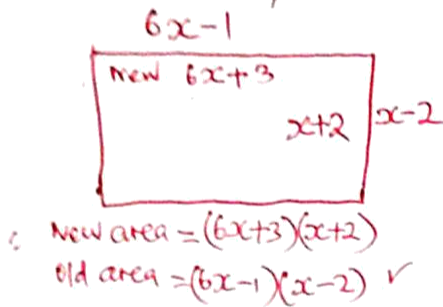 6x-1
new 6x+3
x+2 x-2
: New area = (6x+3)(x+2)
old area = (6x-1)(x-2) ✓